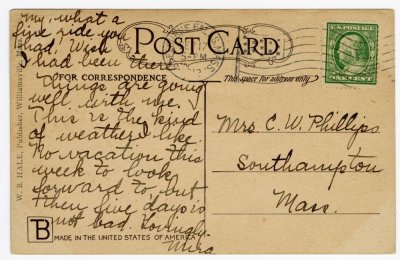 my, what a
fine ride you
had, Wish
I had been there.
POST CARD
FOR CORRESPONDENCE
This space for address only
U.S. POSTAGE
ONE CENT
5-PM
Things are going
well with me.
This is the kind
of weather I like.
No vacation this
week to look
forward to but
then five days is
not bad. Lovingly
Mira
Mrs. C. W. Phillips
Southampton
Mass.
W. B. HALE, Publisher, Williamsville,
B
MADE IN THE UNITED STATES OF AMERICA